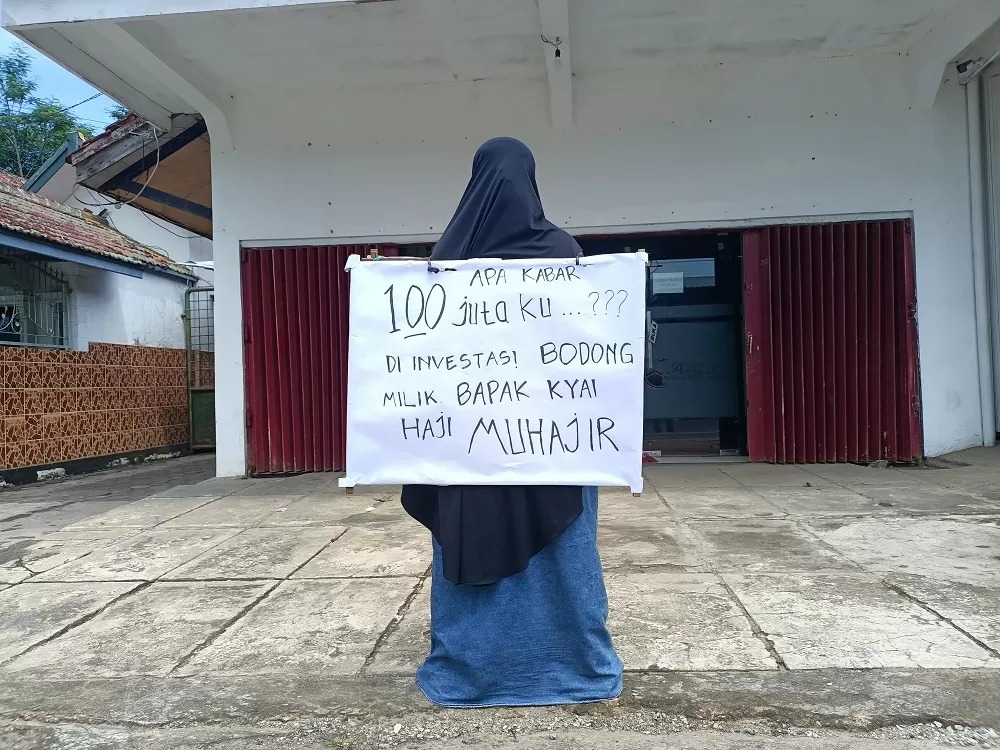 APA KABAR
100 juta KU ...???
DI INVESTASI BODONG
MILIK BAPAK KYAI
HAJI MUHAJIR